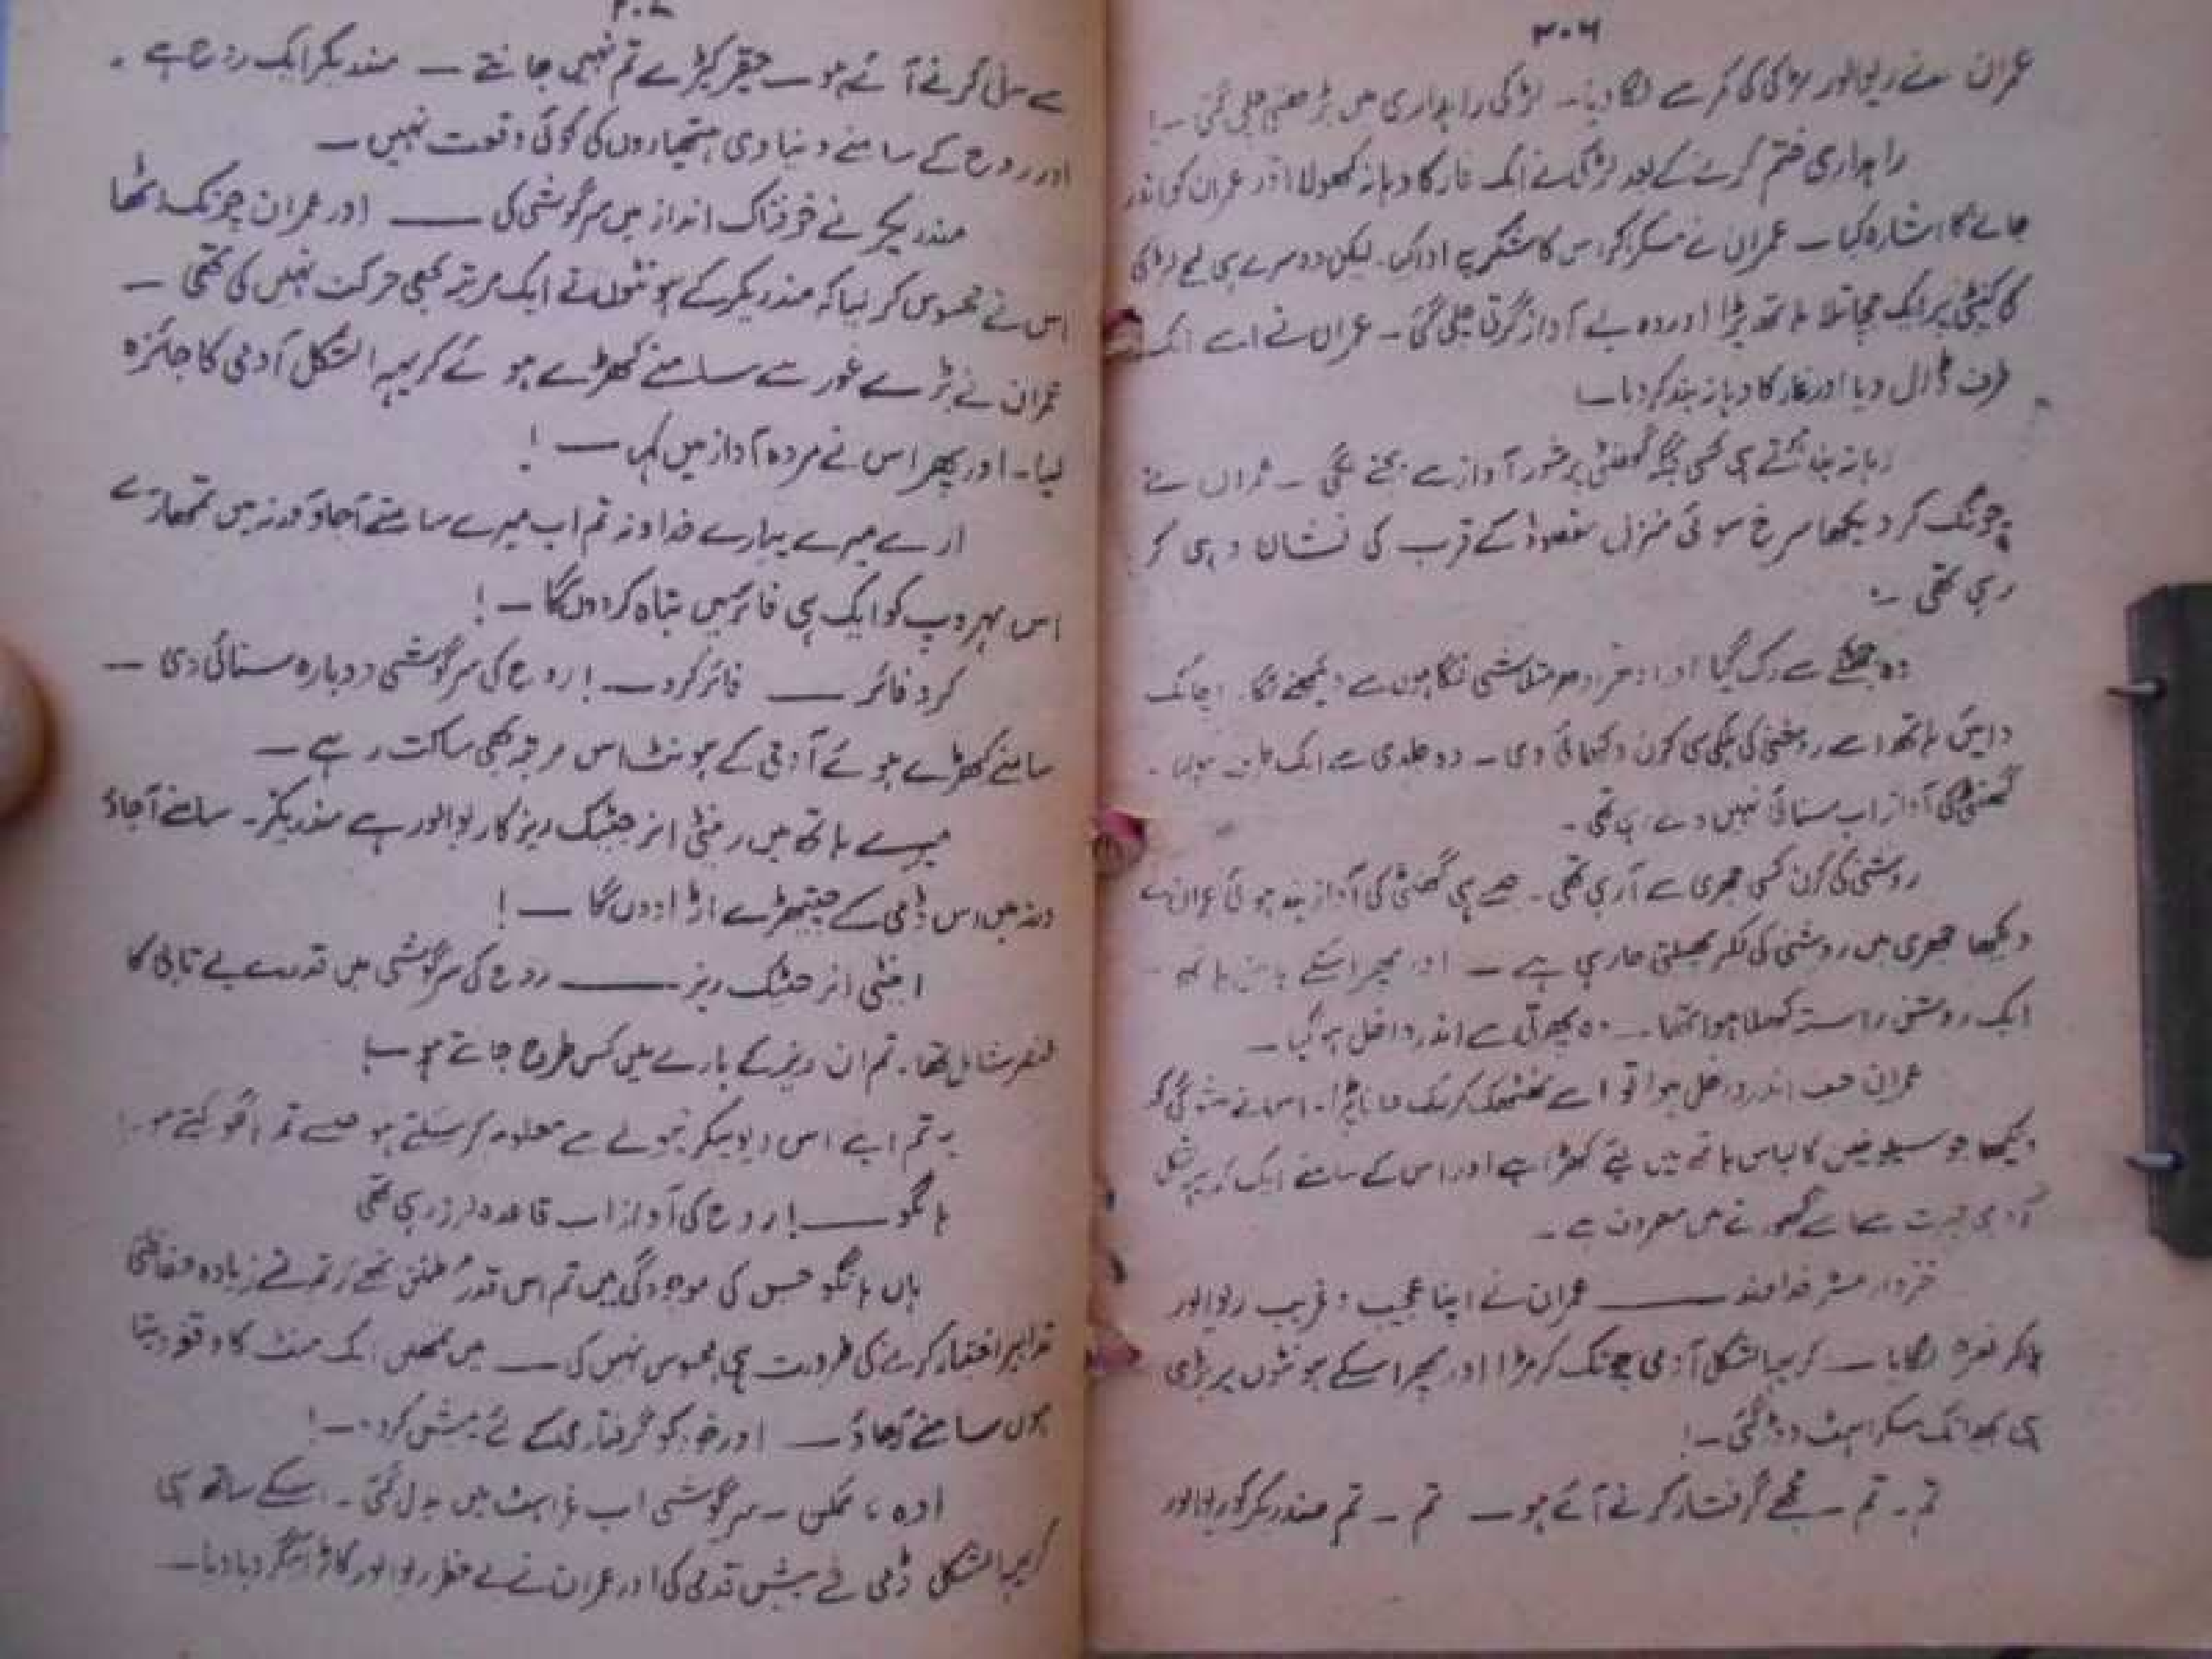 ۳۰۶
عمران نے ریوالور لڑکی کی کمر سے لگا دیا۔ لڑکی راہداری میں بڑھتی چلی گئی۔!
راہداری ختم کرنے کے بعد لڑکی نے ایک غار کا دہانہ کھولا اور عمران کو اندر
جانے کا اشارہ کیا۔ عمران نے مسکرا کر اس کا شکریہ ادا کیا۔ لیکن دوسرے ہی لمحے لڑکی
کی کنپٹی پر ایک جچا تلا ہاتھ پڑا اور وہ بے آواز گرتی چلی گئی۔ عمران نے اسے ایک
طرف ڈال دیا اور غار کا دہانہ بند کر دیا۔
دہانہ بند ہوتے ہی کسی جگہ گھنٹی پر شور آواز سے بجنے لگی۔ عمران نے
چونک کر دیکھا سرخ سوئی منزل مقصود کے قرب کی نشان دہی کر
رہی تھی۔
وہ جھٹکے سے رک گیا اور ادھر ادھر متلاشی نگاہوں سے دیکھنے لگا۔ اچانک
دائیں ہاتھ اسے روشنی کی ہلکی سی کرن دکھائی دی۔ وہ جلدی سے ایک طرف ہولیا۔
گھنٹی کی آواز اب سنائی نہیں دے رہی تھی۔
روشنی کی کرن کسی جھری سے آ رہی تھی۔ جیسے ہی گھنٹی کی آواز بند ہوئی عمران نے
دیکھا جھری میں روشنی کی لکیر پھیلتی جا رہی ہے۔ اور پھر اسکے ہاتھ
ایک روشن راستہ کھلا ہوا تھا۔ وہ پھرتی سے اندر داخل ہو گیا۔
عمران جب اندر داخل ہوا تو اسے ٹھٹھک کر رک جانا پڑا۔ اس نے کو
دیکھا جو کا لباس ہاتھ میں لئے کھڑا ہے اور اس کے سامنے ایک کریہہ شکل
آدمی حیرت سے اسے گھورنے میں مصروف ہے۔
خبردار مسٹر خداوند ــــ عمران نے اپنا عجیب و غریب ریوالور
ہلا کر نعرہ لگایا۔ کریہہ الشکل آدمی چونک کر مڑا اور پھر اسکے ہونٹوں پر بڑی
ہی بھیانک مسکراہٹ دوڑ گئی۔!
تم۔ تم۔ مجھے گرفتار کرنے آئے ہو۔ تم۔ تم مندریکر کو ریوالور
۳۰۷
سے سل کرنے آئے ہو۔ حقیر کیڑے تم نہیں جانتے۔ مندریکر ایک روح ہے۔
اور روح کے سامنے دنیاوی ہتھیاروں کی کوئی وقعت نہیں۔
مندریکر نے خوفناک انداز میں سرگوشی کی ــــ اور عمران چونک اٹھا
اس نے محسوس کر لیا کہ مندریکر کے ہونٹوں نے ایک مرتبہ بھی حرکت نہیں کی تھی۔
عمران نے بڑے غور سے سامنے کھڑے ہوئے کریہہ الشکل آدمی کا جائزہ
لیا۔ اور پھر اس نے مردہ آواز میں کہا ــ!
ارے میرے پیارے خداوند تم اب میرے سامنے آ جاؤ ورنہ میں تمھارے
اس بہروپ کو ایک ہی فائر میں تباہ کر دوں گا۔!
کرو فائر ــــ فائر کرو ــ! روح کی سرگوشی دوبارہ سنائی دی۔
سامنے کھڑے ہوئے آدمی کے ہونٹ اس مرتبہ بھی ساکت رہے۔
میرے ہاتھ میں اینٹی انرجٹک ریز کا ریوالور ہے مندریکر۔ سامنے آ جاؤ
ورنہ میں اس ڈمی کے چیتھڑے اڑا دوں گا ــ!
اینٹی انرجٹک ریز ــــ روح کی سرگوشی میں قدرے بے تابی کا
عنصر شامل تھا۔ تم ان ریز کے بارے میں کس طرح جانتے ہو۔!
یہ تم اپنے اس دیوپیکر سے معلوم کر سکتے ہو جسے تم ہانگو کہتے ہو۔!
ہانگو ــــ! روح کی آواز اب قاعدہ لرز رہی تھی
ہاں ہانگو جس کی موجودگی میں تم اس قدر مطمئن تھے کہ تم نے زیادہ حفاظتی
تدابیر اختیار کرنے کی ضرورت ہی محسوس نہیں کی ــ میں تمھیں ایک منٹ کا وقفہ دیتا
ہوں سامنے آ جاؤ ــ اور خود کو گرفتاری کے لئے پیش کر دو۔!
اوہ، ناممکن۔ سرگوشی اب غراہٹ میں بدل گئی۔ اسکے ساتھ ہی
کریہہ الشکل ڈمی نے پیش قدمی کی اور عمران نے بے خطر ریوالور کا ٹرائیگر دبا دیا۔